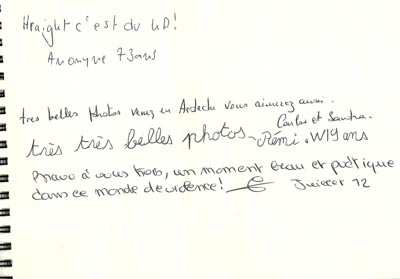 Hraight c'est du HD!
Anonyme 73ans
très belles photos venez en Ardèche vous aimerez aussi.
Carlos et Sandra.
très très belles photos - Rémi. W 19 ans
Bravo à vous trois, un moment beau et poétique
dans ce monde de violence!
Juillet 12